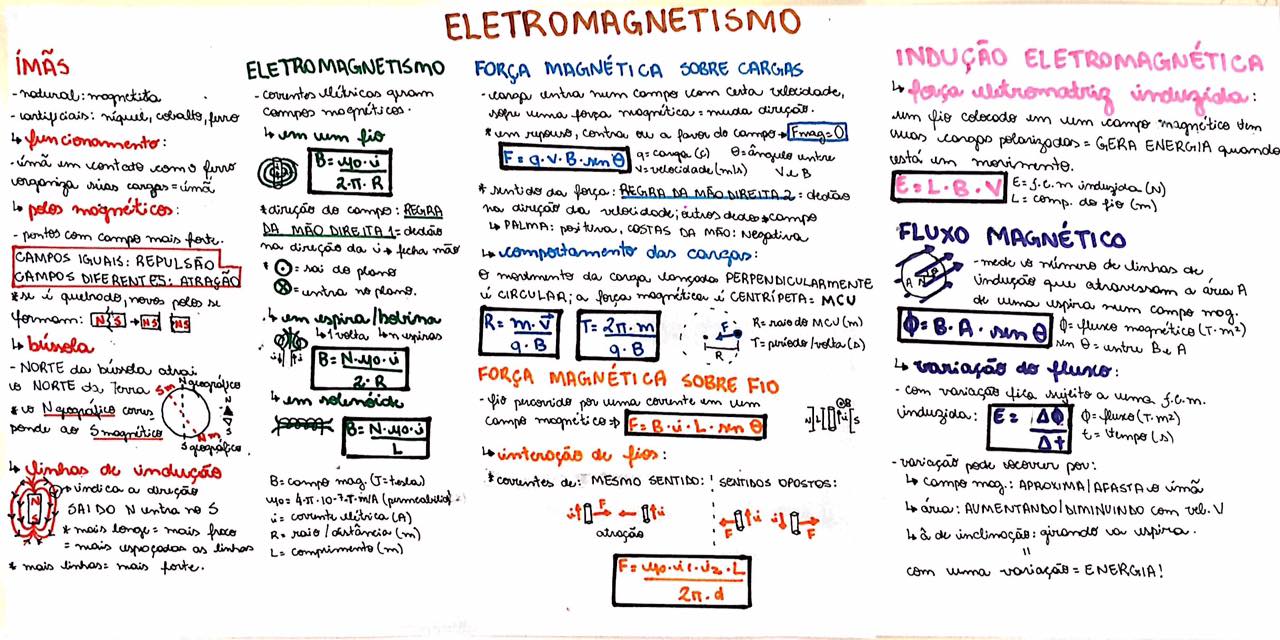 ELETROMAGNETISMO
ÍMÃS
- natural: magnetita
- artificiais: níquel, cobalto, ferro
↳ funcionamento:
- ímã em contato com o ferro
organiza suas cargas = ímã
↳ polos magnéticos:
- pontos com campo mais forte.
CAMPOS IGUAIS: REPULSÃO
CAMPOS DIFERENTES: ATRAÇÃO
* se é quebrado, novos polos se
formam: N S → N S N S
↳ bússola
- NORTE da bússola atrai
o NORTE da Terra
* o N geográfico corres
ponde ao S magnético
Sm N geográfico
N
S
Nm
S geográfico
↳ linhas de indução
N
S
→ indica a direção
SAI DO N entra no S
* mais longe = mais fraco
= mais espaçadas as linhas
* mais linhas = mais forte.
ELETROMAGNETISMO
- correntes elétricas geram
campos magnéticos.
↳ em um fio
B = μ0 · i
2 · π · R
* direção do campo: REGRA
DA MÃO DIREITA 1 = dedão
na direção da i → fecha mão
* ⊙ = sai do plano
⊗ = entra no plano.
↳ em espira/bobina
↳ 1 volta ↳ n espiras
B = N · μ0 · i
2 · R
↳ em solenóide
B = N · μ0 · i
L
B = campo mag. (T = tesla)
μ0 = 4 · π · 10⁻⁷ T·m/A (permeabilid)
i = corrente elétrica (A)
R = raio / distância (m)
L = comprimento (m)
FORÇA MAGNÉTICA SOBRE CARGAS
- carga entra num campo com certa velocidade,
sofre uma força magnética = muda direção.
* em repouso, contra ou a favor do campo → Fmag = 0
F = q · V · B · sen θ
q = carga (c) θ = ângulo entre
V = velocidade (m/s) V e B
* sentido da força: REGRA DA MÃO DIREITA 2 = dedão
na direção da velocidade; outros dedos → campo
↳ PALMA: positiva, COSTAS DA MÃO: Negativa
↳ comportamento das cargas:
O movimento da carga lançada PERPENDICULARMENTE
é CIRCULAR; a força magnética é CENTRÍPETA = MCU
R = m · V
q · B
T = 2π · m
q · B
F
R
R = raio do MCU (m)
T = período / volta (s)
FORÇA MAGNÉTICA SOBRE FIO
- fio percorrido por uma corrente em um
campo magnético ⇒ F = B · i · L · sen θ
⊗B
N i S
↳ interação de fios:
* correntes de: MESMO SENTIDO: SENTIDOS OPOSTOS:
i F F i
atração
F i i F
F = μ0 · i1 · i2 · L
2π · d
INDUÇÃO ELETROMAGNÉTICA
↳ força eletromatriz induzida:
um fio colocado em um campo magnético tem
suas cargas polarizadas = GERA ENERGIA quando
está em movimento.
E = L · B · V
E = f.e.m induzida (N)
L = comp. do fio (m)
FLUXO MAGNÉTICO
A
- mede o número de linhas de
indução que atravessam a área A
de uma espira num campo mag.
ϕ = B · A · sen θ
ϕ = fluxo magnético (T·m²)
sen θ = entre B e A
↳ variação do fluxo:
- com variação fica sujeito a uma f.e.m.
induzida:
E = Δϕ
Δt
ϕ = fluxo (T.m²)
t = tempo (s)
- variação pode ocorrer por:
↳ campo mag.: APROXIMA/AFASTA o ímã
↳ área: AUMENTANDO/DIMINUINDO com vel. V
↳ â de inclinação: girando a espira.
=
com uma variação = ENERGIA!